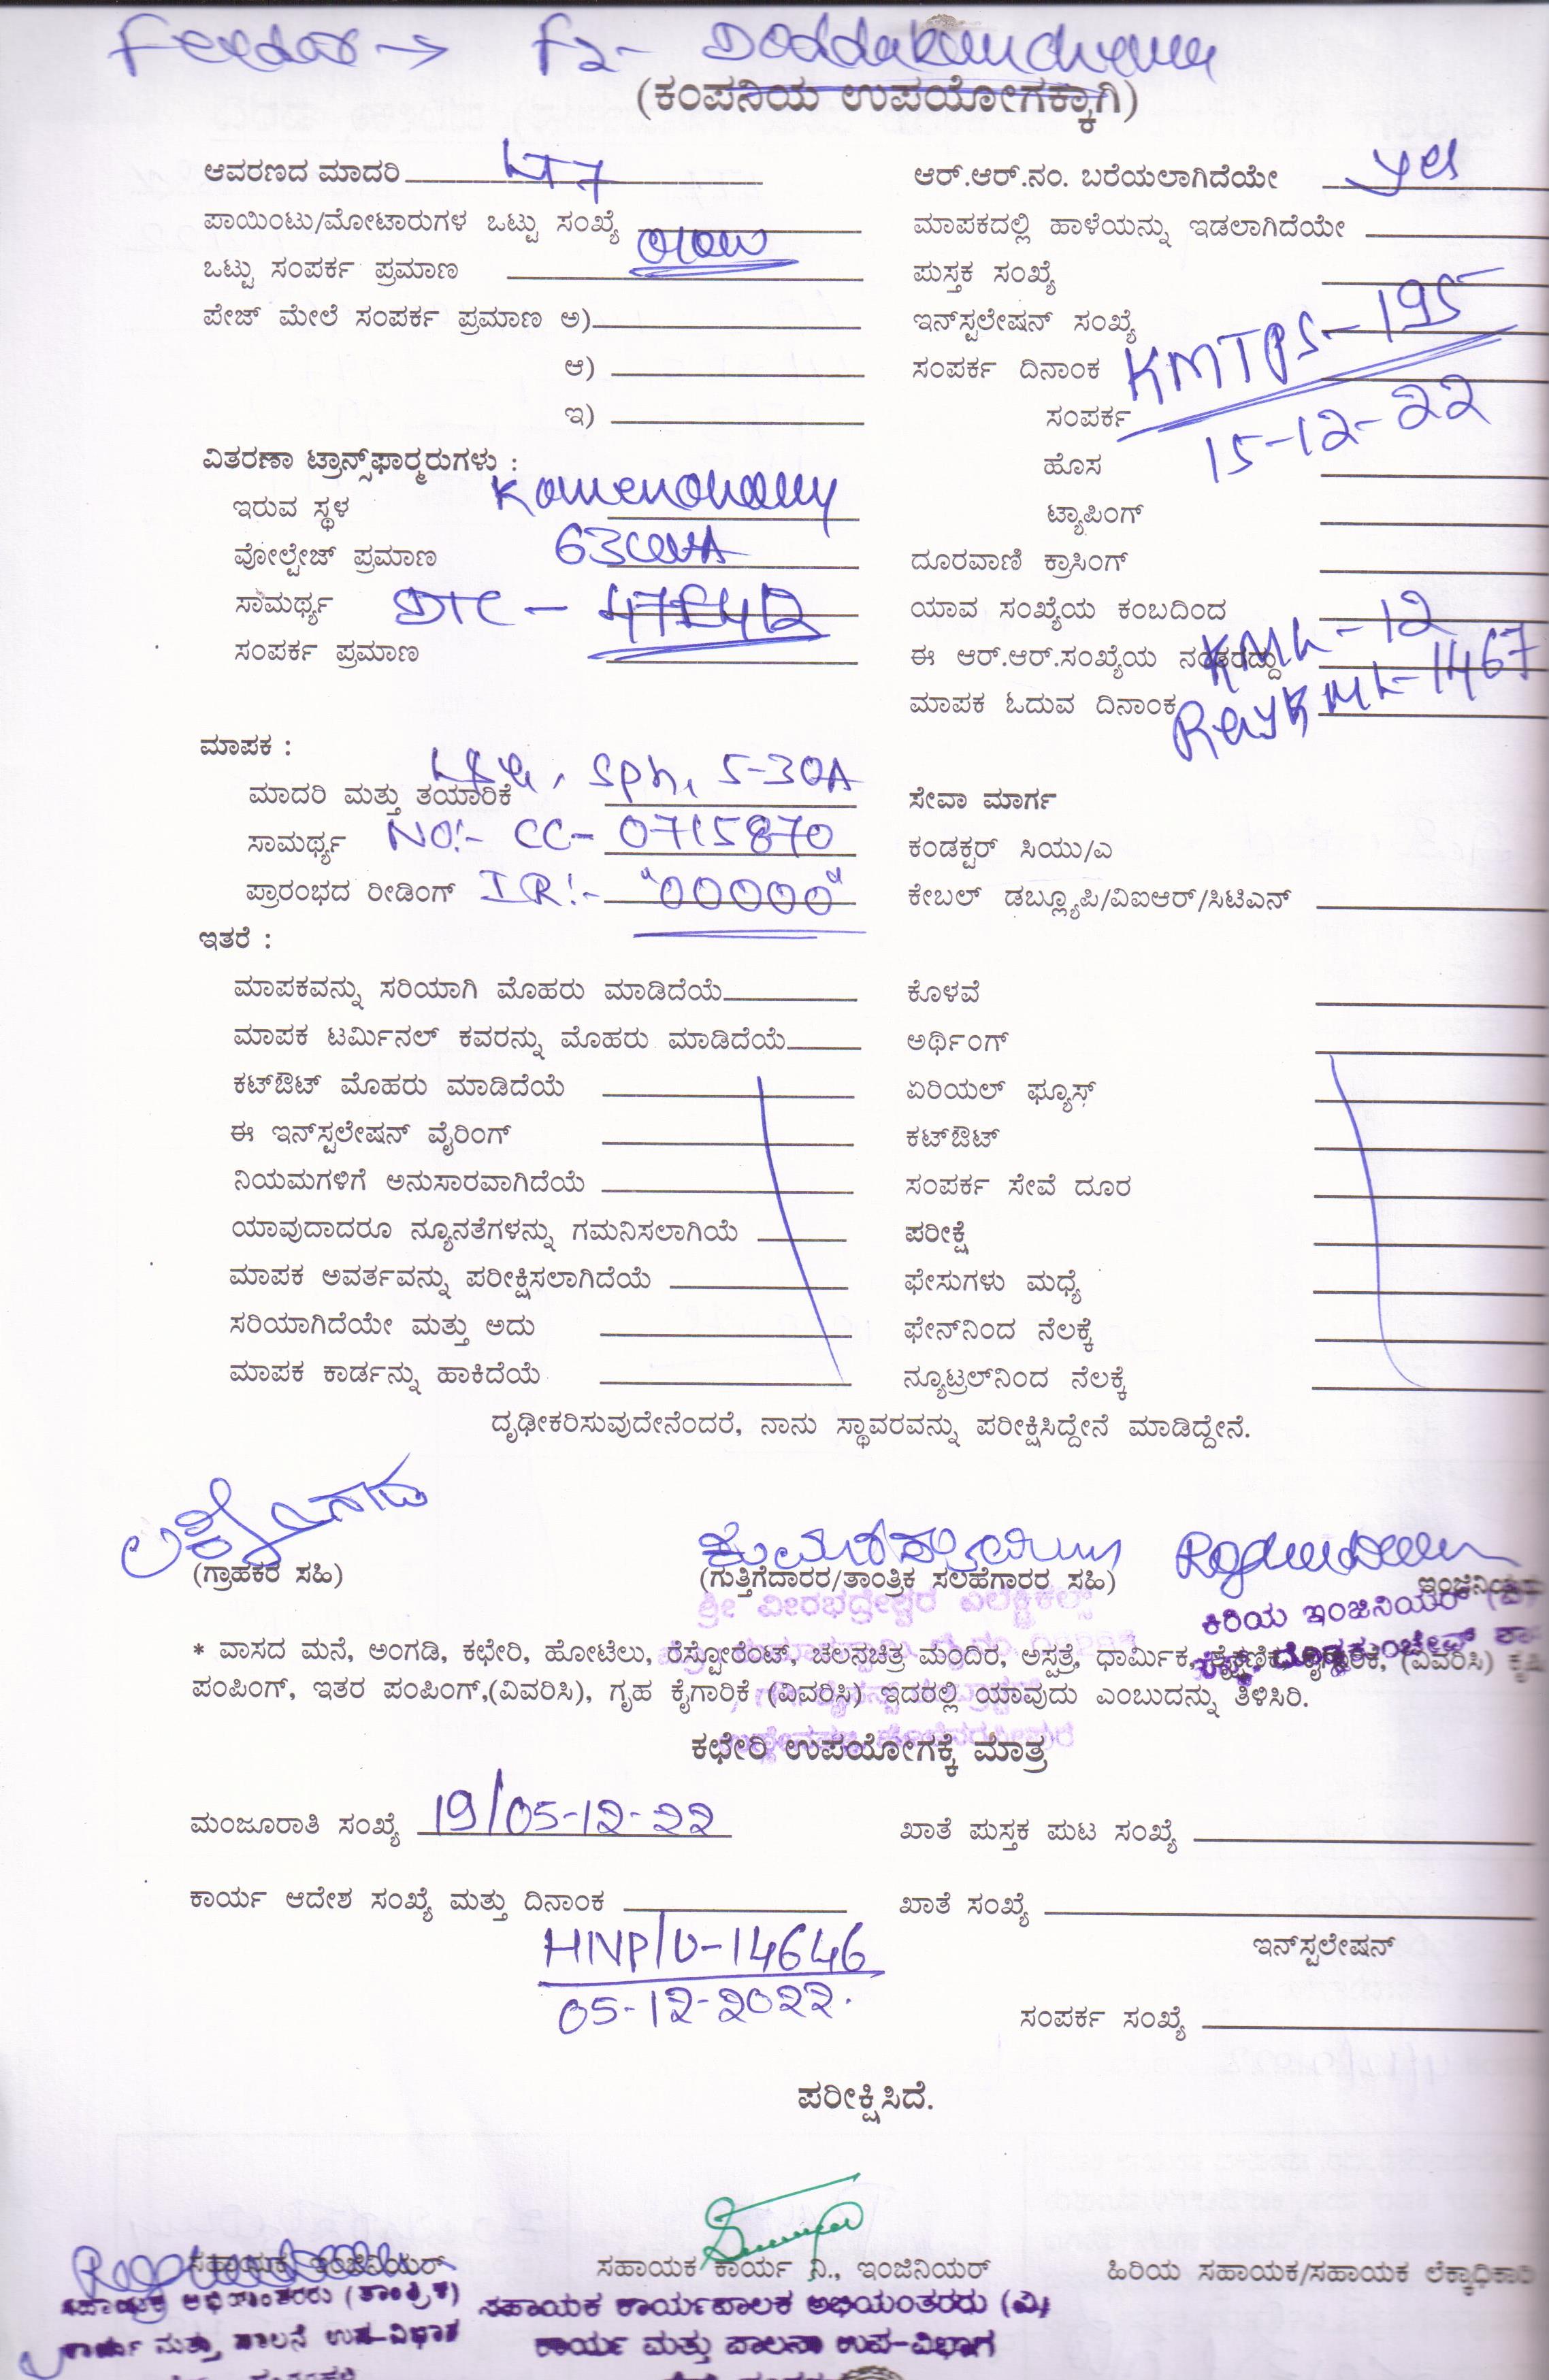 Feeder → F2-
(ಕಂಪನಿಯ ಉಪಯೋಗಕ್ಕಾಗಿ)
ಆವರಣದ ಮಾದರಿ LT7 ಆರ್.ಆರ್.ನಂ. ಬರೆಯಲಾಗಿದೆಯೇ yes
ಪಾಯಿಂಟು/ಮೋಟಾರುಗಳ ಒಟ್ಟು ಸಂಖ್ಯೆ ಮಾಪಕದಲ್ಲಿ ಹಾಳೆಯನ್ನು ಇಡಲಾಗಿದೆಯೇ
ಒಟ್ಟು ಸಂಪರ್ಕ ಪ್ರಮಾಣ ಪುಸ್ತಕ ಸಂಖ್ಯೆ
ಪೇಜ್ ಮೇಲೆ ಸಂಪರ್ಕ ಪ್ರಮಾಣ ಅ) ಇನ್‌ಸ್ಟಲೇಷನ್ ಸಂಖ್ಯೆ KMTPS-195
ಆ) ಸಂಪರ್ಕ ದಿನಾಂಕ 15-12-22
ಇ) ಸಂಪರ್ಕ
ವಿತರಣಾ ಟ್ರಾನ್ಸ್‌ಫಾರ್ಮರುಗಳು : ಹೊಸ
ಇರುವ ಸ್ಥಳ ಟ್ಯಾಪಿಂಗ್
ವೋಲ್ಟೇಜ್ ಪ್ರಮಾಣ ದೂರವಾಣಿ ಕ್ರಾಸಿಂಗ್
ಸಾಮರ್ಥ್ಯ DTC - ಯಾವ ಸಂಖ್ಯೆಯ ಕಂಬದಿಂದ
ಸಂಪರ್ಕ ಪ್ರಮಾಣ ಈ ಆರ್.ಆರ್.ಸಂಖ್ಯೆಯ ನಂತರದ್ದು
ಮಾಪಕ ಓದುವ ದಿನಾಂಕ
ಮಾಪಕ :
ಮಾದರಿ ಮತ್ತು ತಯಾರಿಕೆ Sph, 5-30A ಸೇವಾ ಮಾರ್ಗ
ಸಾಮರ್ಥ್ಯ NO:- CC- 0715870 ಕಂಡಕ್ಟರ್ ಸಿಯು/ಎ
ಪ್ರಾರಂಭದ ರೀಡಿಂಗ್ IR:- "00000" ಕೇಬಲ್ ಡಬ್ಲ್ಯೂಪಿ/ವಿಐಆರ್/ಸಿಟಿಎನ್
ಇತರೆ :
ಮಾಪಕವನ್ನು ಸರಿಯಾಗಿ ಮೊಹರು ಮಾಡಿದೆಯೆ ಕೊಳವೆ
ಮಾಪಕ ಟರ್ಮಿನಲ್ ಕವರನ್ನು ಮೊಹರು ಮಾಡಿದೆಯೆ ಅರ್ಥಿಂಗ್
ಕಟ್‌ಔಟ್ ಮೊಹರು ಮಾಡಿದೆಯೆ ಏರಿಯಲ್ ಫ್ಯೂಸ್
ಈ ಇನ್‌ಸ್ಟಲೇಷನ್ ವೈರಿಂಗ್ ಕಟ್‌ಔಟ್
ನಿಯಮಗಳಿಗೆ ಅನುಸಾರವಾಗಿದೆಯೆ ಸಂಪರ್ಕ ಸೇವೆ ದೂರ
ಯಾವುದಾದರೂ ನ್ಯೂನತೆಗಳನ್ನು ಗಮನಿಸಲಾಗಿಯೆ ಪರೀಕ್ಷೆ
ಮಾಪಕ ಅವರ್ತವನ್ನು ಪರೀಕ್ಷಿಸಲಾಗಿದೆಯೆ ಫೇಸುಗಳು ಮಧ್ಯೆ
ಸರಿಯಾಗಿದೆಯೇ ಮತ್ತು ಅದು ಫೇನ್‌ನಿಂದ ನೆಲಕ್ಕೆ
ಮಾಪಕ ಕಾರ್ಡನ್ನು ಹಾಕಿದೆಯೆ ನ್ಯೂಟ್ರಲ್‌ನಿಂದ ನೆಲಕ್ಕೆ
ದೃಢೀಕರಿಸುವುದೇನೆಂದರೆ, ನಾನು ಸ್ಥಾವರವನ್ನು ಪರೀಕ್ಷಿಸಿದ್ದೇನೆ ಮಾಡಿದ್ದೇನೆ.
(ಗ್ರಾಹಕರ ಸಹಿ) (ಗುತ್ತಿಗೆದಾರರ/ತಾಂತ್ರಿಕ ಸಲಹೆಗಾರರ ಸಹಿ)
ಶ್ರೀ ವೀರಭದ್ರೇಶ್ವರ ಎಲೆಕ್ಟ್ರಿಕಲ್ಸ್ ಕಿರಿಯ ಇಂಜಿನಿಯರ್
* ವಾಸದ ಮನೆ, ಅಂಗಡಿ, ಕಛೇರಿ, ಹೋಟೆಲು, ರೆಸ್ಟೋರೆಂಟ್, ಚಲನಚಿತ್ರ ಮಂದಿರ, ಅಸ್ಪತ್ರೆ, ಧಾರ್ಮಿಕ, (ವಿವರಿಸಿ)
ಪಂಪಿಂಗ್, ಇತರ ಪಂಪಿಂಗ್,(ವಿವರಿಸಿ), ಗೃಹ ಕೈಗಾರಿಕೆ (ವಿವರಿಸಿ) ಇದರಲ್ಲಿ ಯಾವುದು ಎಂಬುದನ್ನು ತಿಳಿಸಿರಿ.
ಕಛೇರಿ ಉಪಯೋಗಕ್ಕೆ ಮಾತ್ರ
ಮಂಜೂರಾತಿ ಸಂಖ್ಯೆ 19/05-12-22 ಖಾತೆ ಪುಸ್ತಕ ಪುಟ ಸಂಖ್ಯೆ
ಕಾರ್ಯ ಆದೇಶ ಸಂಖ್ಯೆ ಮತ್ತು ದಿನಾಂಕ ಖಾತೆ ಸಂಖ್ಯೆ
HNP/U-14646 ಇನ್‌ಸ್ಟಲೇಷನ್
05-12-2022. ಸಂಪರ್ಕ ಸಂಖ್ಯೆ
ಪರೀಕ್ಷಿಸಿದೆ.
ಸಹಾಯಕ ಇಂಜಿನಿಯರ್ ಸಹಾಯಕ ಕಾರ್ಯ ನಿ., ಇಂಜಿನಿಯರ್ ಹಿರಿಯ ಸಹಾಯಕ/ಸಹಾಯಕ ಲೆಕ್ಕಾಧಿಕಾರಿ
ಸಹಾಯಕ ಅಭಿಯಂತರರು (ತಾಂತ್ರಿಕ) ಸಹಾಯಕ ಕಾರ್ಯಪಾಲಕ ಅಭಿಯಂತರರು (ವಿ)
ಕಾರ್ಯ ಮತ್ತು ಪಾಲನೆ ಉಪ-ವಿಭಾಗ ಕಾರ್ಯ ಮತ್ತು ಪಾಲನಾ ಉಪ-ವಿಭಾಗ